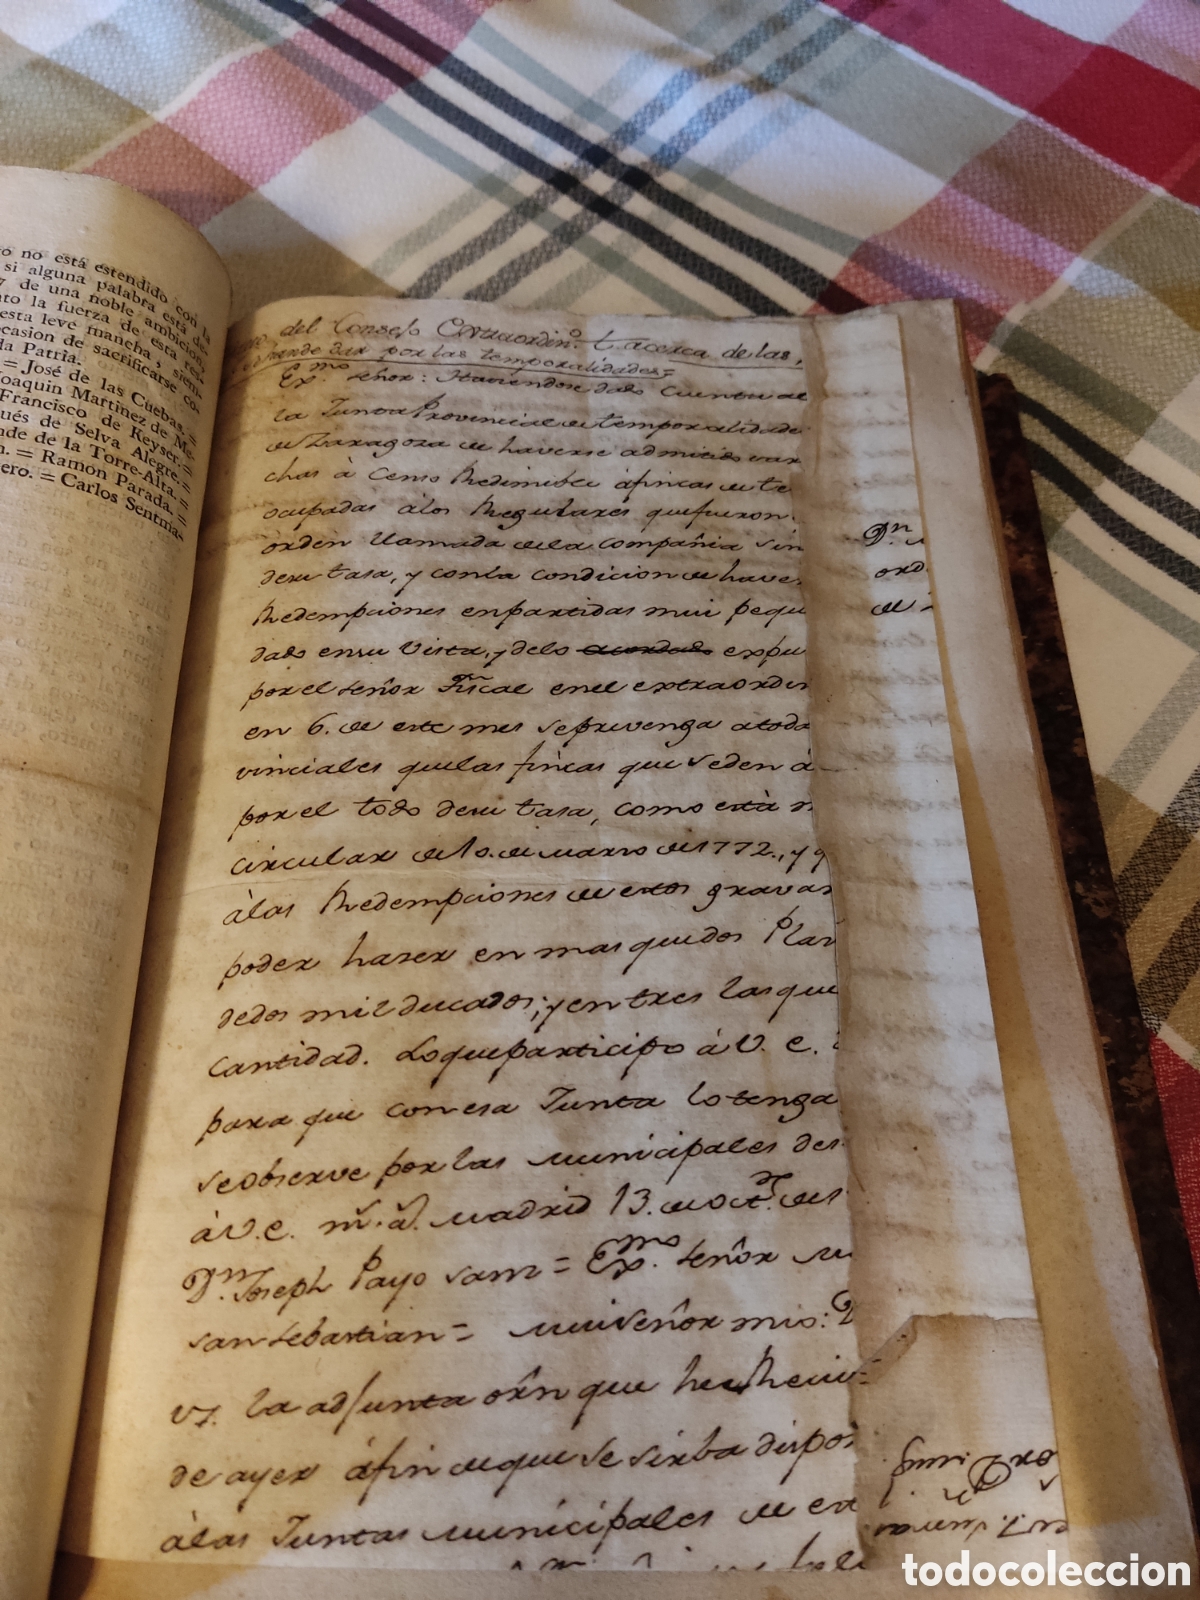 o no está estendido con la
si alguna palabra está de-
de una noble ambicion,
nto la fuerza de esta res-
esta leve mancha, siem-
ocasion de sacrificarse co-
da Patria.
= José de las Cuebas. =
Joaquin Martinez de Me-
Francisco de Keyser. =
ués de Selva Alegre. =
nde de la Torre-Alta. =
n. = Ramon Parada. =
ero. = Carlos Sentma-
del Consejo Extraordin.º acerca de las
por las temporalidades =
Ex.mo señor: Haviendose dado cuenta al
la Junta Provincial de temporalidade
de Zaragoza de haverse admitido var
chas à Censo Redimible á fincas de te
ocupadas álos Regulares que fueron
orden llamada de la compañia sin
desu tasa, y con la condicion de haver
Redempciones en partidas mui pequ
dado en su Vista, y delo acordado expu
por el señor Fiscal enel extraordin
en 6. de este mes se prevenga a toda
vinciales que las fincas que se den á
por el todo desu tasa, como està m
circular de 10. de Marzo de 1772., y q
àlas Redempciones de estos gravam
poder hazer en mas que dos Plaz
de dos mil ducados; y en tres las que
cantidad. Lo que participo á V. E.
para que con esa Junta lo tenga
se observe por las municipales des
à V. E. m.s a.s Madrid 13. de Oct.re de 1
D.n Joseph Payo sanz = Ex.mo señor
san sebastian = mui señor mio:
la adjunta orn que he Recivi=
de ayer á fin de que se sirba dispo
álas Juntas municipales de est
D.n
ord
de